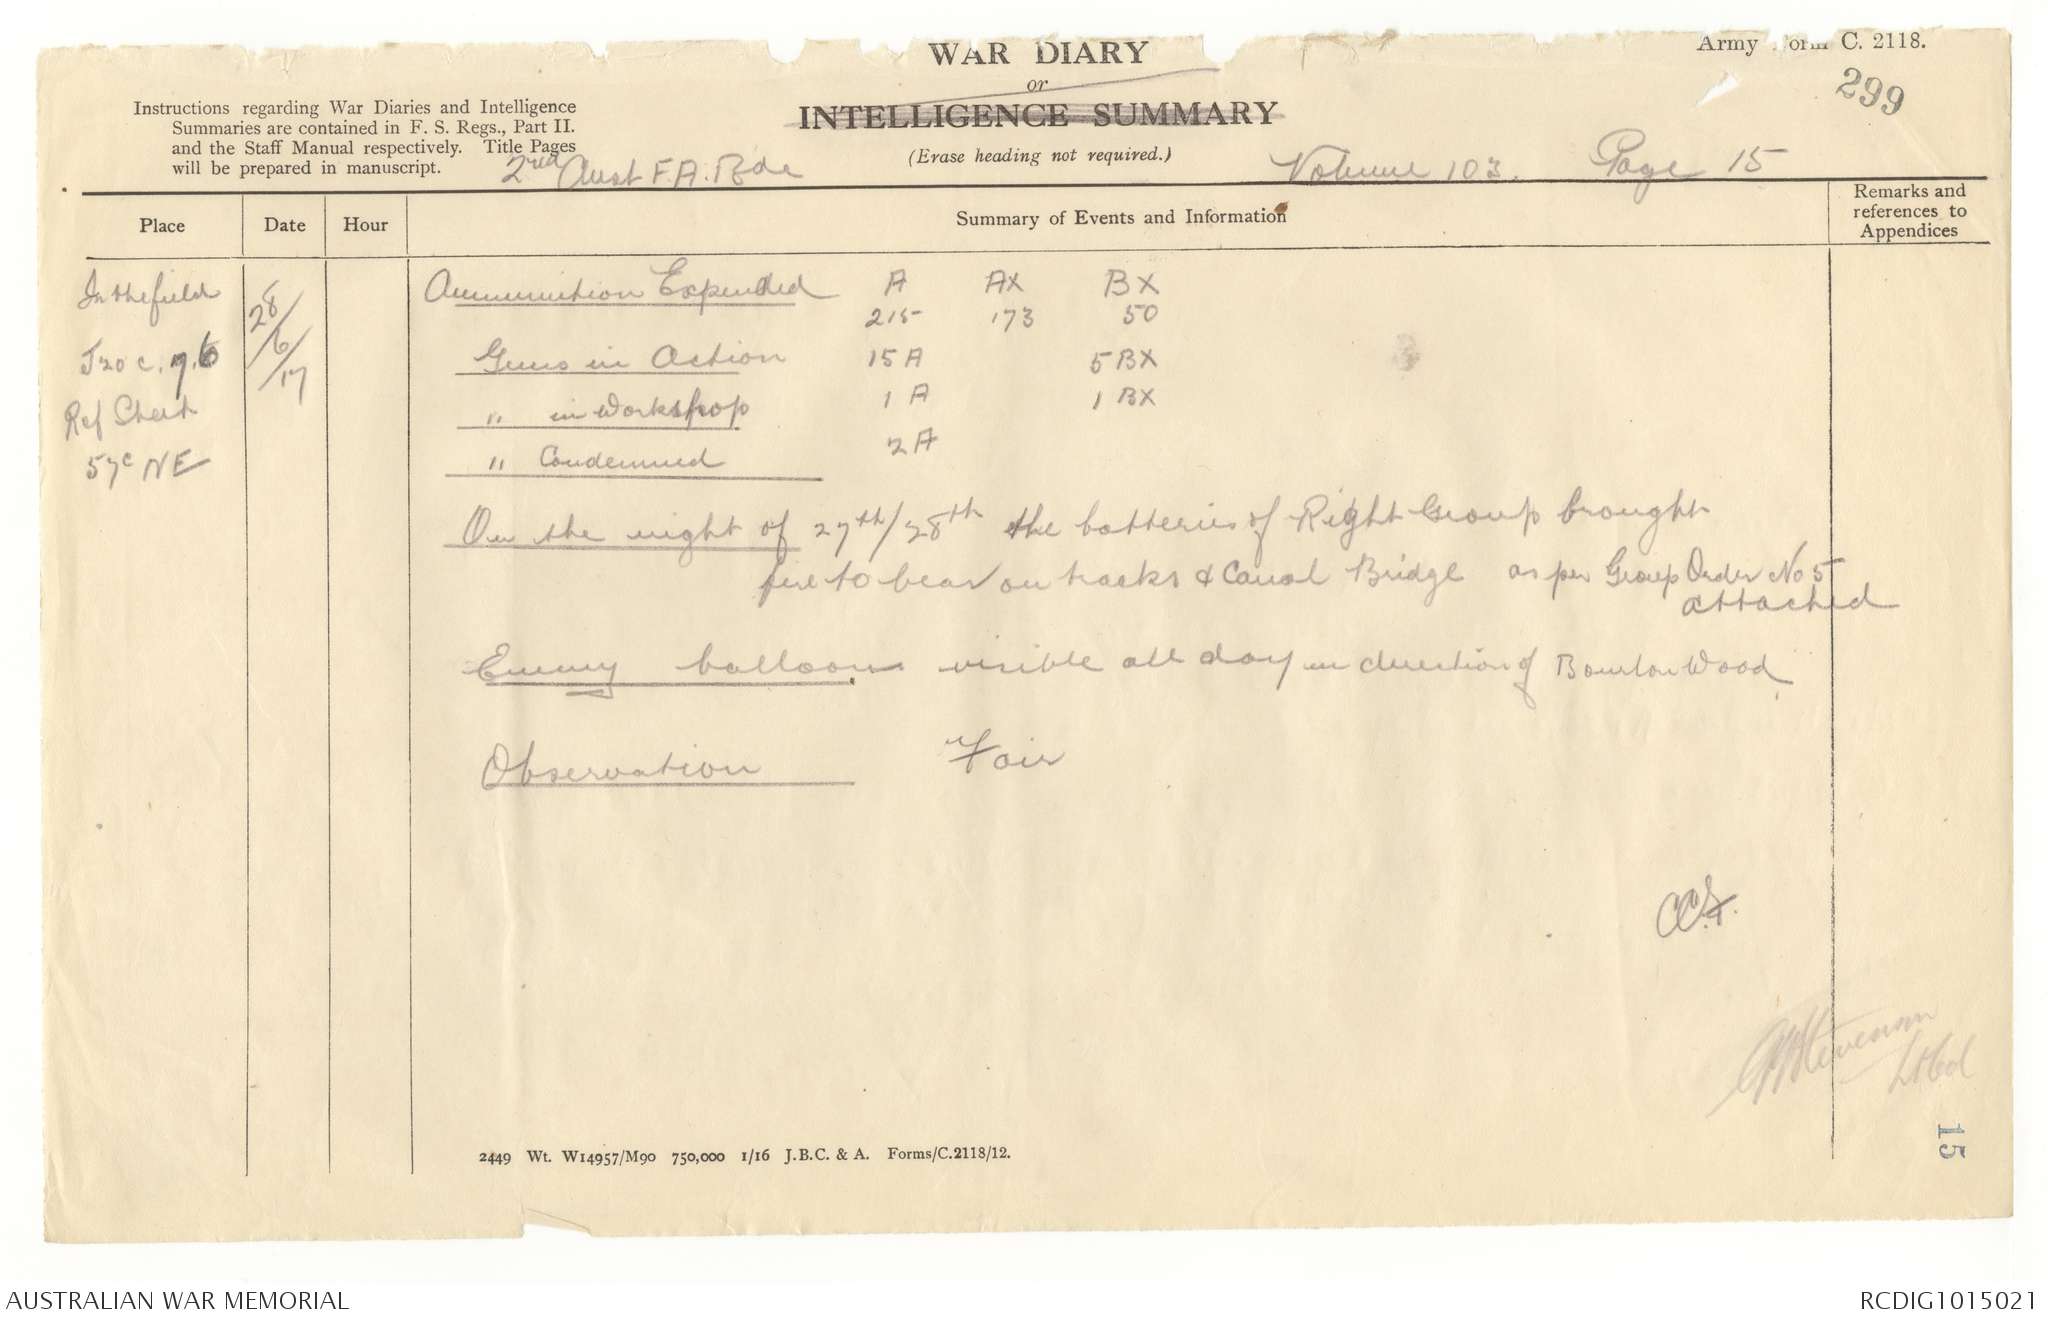 WAR DIARY
Army Form C. 2118.
or
299
INTELLIGENCE SUMMARY
Instructions regarding War Diaries and Intelligence
Summaries are contained in F. S. Regs., Part II.
and the Staff Manual respectively. Title Pages
will be prepared in manuscript.
(Erase heading not required.)
2nd Aust F.A. Bde
Volume 103. Page 15
Place Date Hour Summary of Events and Information Remarks and references to Appendices
In the field
28/6/17
J20 c. 7.6
Ref Sheet
57c NE
Ammunition Expended A AX BX
215 173 50
Guns in Action 15 A 5 BX
" in Workshop 1 A 1 BX
" Condemned 2 A
On the night of 27th/28th the batteries of Right Group brought
fire to bear on tracks & Canal Bridge as per Group Order No 5
attached
Enemy balloons visible all day in direction of Bourlon Wood
Observation Fair
Lt Col
15
2449 Wt. W14957/M90 750,000 1/16 J.B.C. & A. Forms/C.2118/12.
AUSTRALIAN WAR MEMORIAL
RCDIG1015021